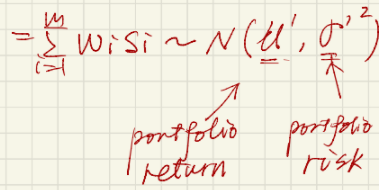 = \sum_{i=1}^{m} w_i s_i \sim N(\mu', \sigma'^2)
portfolio return
portfolio risk